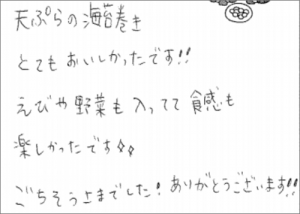 天ぷらの海苔巻き
とてもおいしかったです!!
えびや野菜も入ってて食感も
楽しかったです✧✧
ごちそうさまでした!ありがとうございます!!